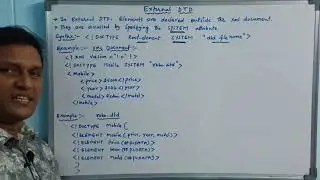 External DTD
→ In External DTD, Elements are declared outside the xml document.
→ They are accessed by specifying the SYSTEM attribute
Syntax:- <!DOCTYPE root-element SYSTEM "dtd file name">
Example:- xml document
<?xml version="1.0"?>
<!DOCTYPE mobile SYSTEM
<mobile>
<price> </price>
<year> </year>
<model> </model>
</mobile>
Example:-
<!DOCTYPE mobile [
<!ELEMENT mobile (price, year, model)>
<!ELEMENT price (#PCDATA)>
<!ELEMENT year (#PCDATA)>
<!ELEMENT model (#PCDATA)>
]
>